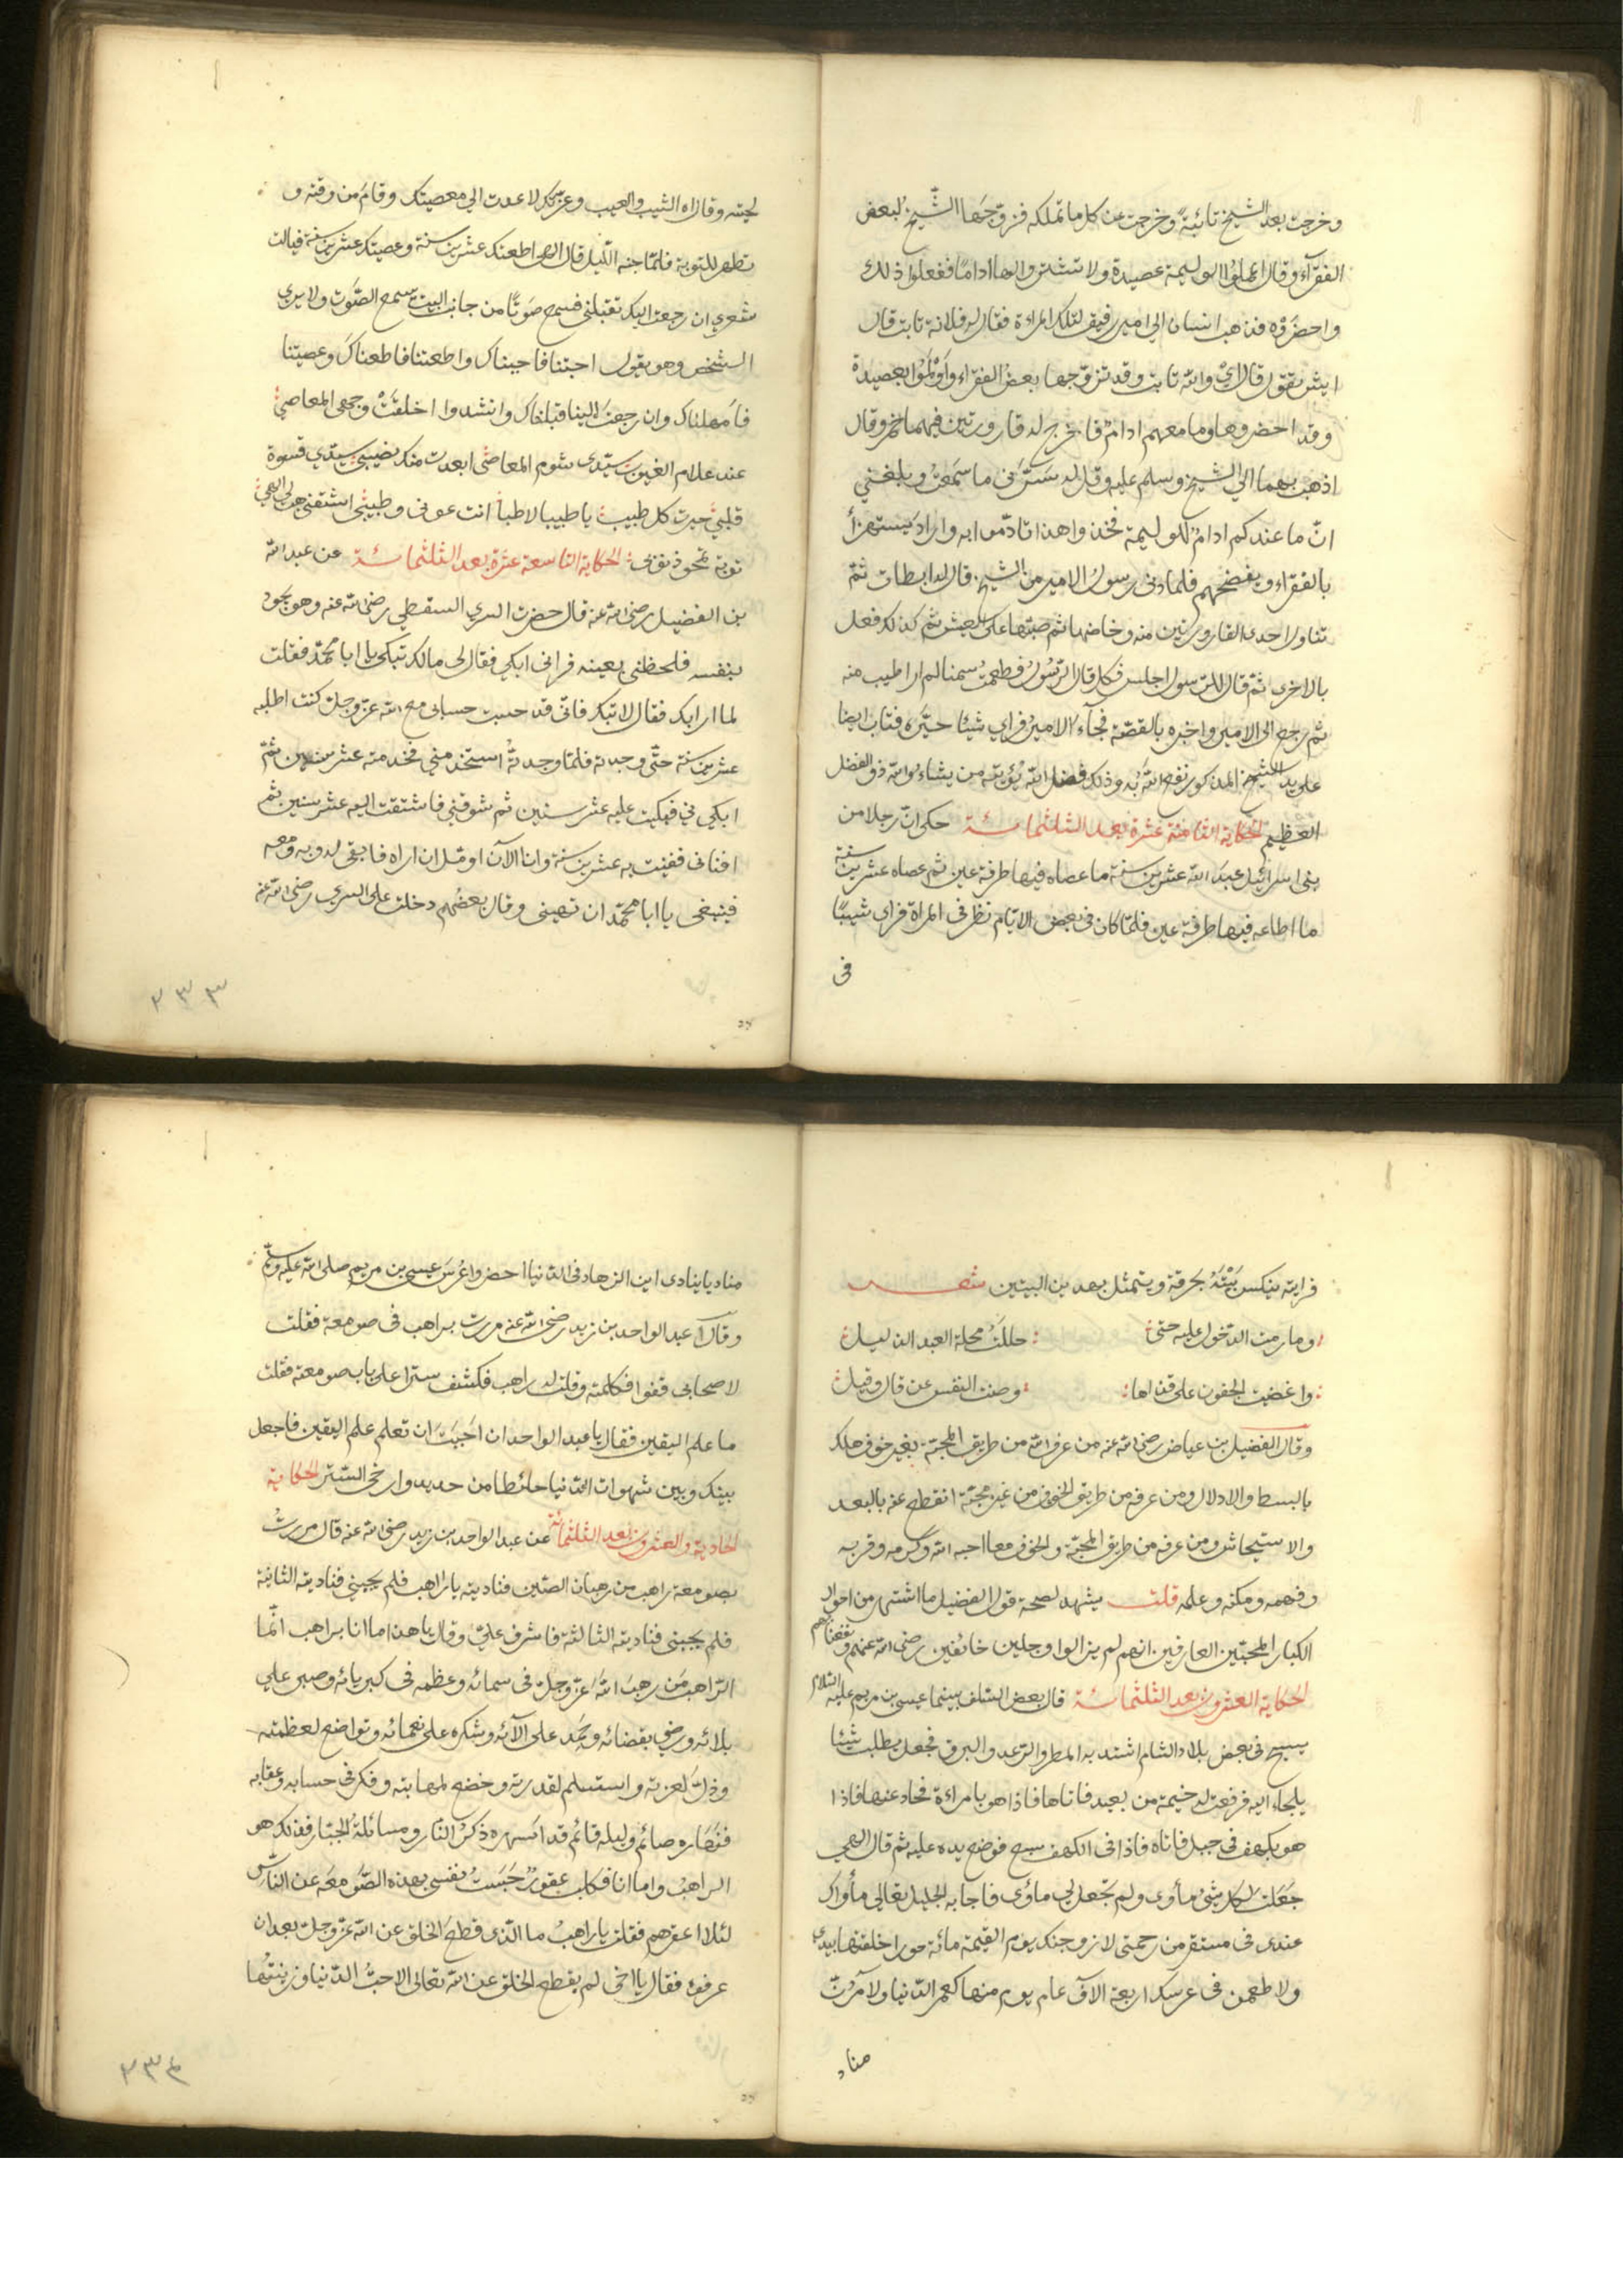 وخرجت بعد الشيخ تائبة وخرجت عن كل ما تملكه فزوّجها الشيخ لبعض
الفقرآء وقال اعملوا الوليمة عصيدة ولا تشتروا لها اداما ففعلوا ذلك
واحضروه فذهب انسان الى امير رفيق لتلك المراءة فقال له فلانة تابت قال
ايش تقول قال اي والله تابت وقد تزوّجها بعض الفقراء واولموا بعصيدة
وقد احضروها وما معهم ادام فاخرج له قارورتين فيهما خمر وقال
اذهب بهما الي الشيخ وسلم عليه وقل له سرّنى ما سمعت وبلغني
انّ ما عندكم ادام للوليمة فخذوا هذا تادّموا به واراد يستهزأ
بالفقراء ويفضحهم فلما دنى رسول الامير من الشيخ قال له ابطات ثمّ
تناول احدى القارورتين منه وخاضها ثم صبّها على العيش ثم كذلك فعل
بالاخرى ثمّ قال للرّسول اجلس فكل قال الرّسول فطعمت سمنا لم ار اطيب منه
ثم رجع الى الامير واخبره بالقصّة فجآء الامير فراي شيئا حيّره فتاب ايضا
على يد الشيخ المذكور نفع الله به وذلك فضل الله يؤتيه من يشاء والله ذو الفضل
العظيم الحكاية الثامنة عشرة بعد الثلثمائة حكى انّ رجلا من
بنى اسرائيل عبد الله عشرين سنة ما عصاه فيها طرفة عين ثم عصاه عشرين سنة
ما اطاعه فيها طرفة عين فلمّا كان فى بعض الايّام نظر فى المراة فراى شيبًا
فى
لحيته وقال اه الشيب والعيب وعزّتك لا عدت الي معصيتك وقام من وقته و
تطهر للتوبة فلمّا جنه اللّيل قال الهى اطعتك عشرين سنة وعصيتك عشرين سنة فياليت
شعري ان رجعت اليك تقبلني فسمع صوتًا من جانب البيت يسمع الصّوت ولا يرى
الشخص وهو يقول احببتنا فاحببناك واطعتنا فاطعناك وعصيتنا
فامهلناك وان رجعت الينا قبلناك وانشدوا اخلقت وجهى المعاصي
عند علام الغيوب سيّدى شوم المعاصى ابعدت منك نصيبي سيّدي قسوة
قلبي حيرت كل طبيب يا طبيبا لاطبا انت عونى وطبيبى اشتقنى هب لى الهي
توبة تمحو ذنوبى الحكاية التاسعة عشرة بعد الثلثمائة عن عبد الله
بن الفضيل رضى الله عنه قال حضرت السري السقطي رضى الله عنه وهو يجود
بنفسه فلحظنى بعينه فرانى ابكي فقال لى مالك تبكى يا ابا محمّد فقلت
لما ارا بك فقال لا تبك فانّى قد حسبت حسابى مع الله عزّ وجلّ كنت اطلبه
عشرين سنة حتّى وجدته فلمّا وجدته استخدمني فخدمته عشر سنين ثمّ
ابكي ني فبكيت عليه عشر سنين ثم شوقني فاشتقت اليه عشر سنين ثم
افنانى ففنيت به عشرين سنة وانا الآن اومّل ان اراه فابقى له وبه ومعه
فينبغى يا ابا محمّد ان تهينى وقال بعضهم دخلت على السرى رضى الله عنه
٣٣٣
فرايته ينكس بيته بخرقة ويتمثل بهذين البيتين شعر
وما رمت الدّخول عليه حتى حللت محلة العبد الذليل
واغضيت الجفون على قذاها وصنت النفس عن قال وقيل
وقال الفضيل بن عياض رضى الله عنه من عرف الله من طريق المحبّة بغير خوف هلك
بالبسط والادلال ومن عرفه من طريق الخوف من غير محبّة انقطع عنه بالبعد
والاستيحاش ومن عرفه من طريق المحبّة والخوف معا احبه الله وكرمه وقربه
وفهمه ومكنه وعلمه قلت يشهد لصحة قول الفضيل ما اشتهر من احوال
الكبار المحبّين العارفين انهم لم يزالوا وجلين خائفين رضى الله عنهم ونفعنا بهم
الحكاية العشرون بعد الثلثمائة قال بعض السّلف بينما عيسى بن مريم عليه السّلام
يسيح فى بعض بلاد الشام اشتد به المطر والرّعد والبرق فجعل يطلب شيئا
يلجاء اليه فرفعت له خيمة من بعيد فاتاها فاذا هو بامراءة فحاد عنها فاذا
هو بكهف فى جبل فاتاه فاذا فى الكهف سبع فوضع يده عليه ثم قال الهي
جعلت لكل شئ مأوى ولم تجعل لي مأوى فاجابه الجليل تعالى مأواك
عندى فى مستقر من رحمتى لازوجنك يوم القيمة مائة حورا خلقتها بيدى
ولاطعمن فى عرسك اربعة الآف عام يوم منها كعمر الدّنيا ولآمرنّ
مناد
مناديا ينادى اين الزهاد فى الدّنيا احضروا عرس عيسى بن مريم صلى الله عليه وسلّم
وقال عبد الواحد بن زيد رضى الله عنه مررت براهب فى صومعة فقلت
لاصحابى قفوا فكلمته وقلت له يا راهب فكشف سترا على باب صومعته فقلت
ما علم اليقين فقال يا عبد الواحد ان احببت ان تعلم علم اليقين فاجعل
بينك وبين شهوات الدّنيا حائطا من حديد وارخى السّتر الحكاية
الحادية والعشرون بعد الثلثمائة عن عبد الواحد بن زيد رضى الله عنه قال مررت
بصومعة راهب من رهبان الصّين فناديته يا راهب فلم يجبني فناديته الثانية
فلم يجبنى فناديته الثالثة فاشرف علىّ وقال يا هذا ما انا براهب انّما
الرّاهب من رهب الله عزّ وجلّ فى سمائه وعظمه فى كبريائه وصبر علي
بلائه ورضى بقضائه وحمد على الآئه وشكره على نعمائه وتواضع لعظمته
وذلّ لعزته واستسلم لقدرته وخضع لمهابته وفكر فى حسابه وعقابه
فنهاره صائم وليله قائم قد اسهره ذكر النّار ومسائلة الجبّار فذلك هو
الراهب واما انا فكلب عقور حبست نفسى بهذه الصّومعة عن النّاس
لئلا اعقرهم فقلت يا راهب ما الّذى قطع الخلق عن الله عزّ وجلّ بعد ان
عرفوه فقال يا اخى لم يقطع الخلق عن الله تعالى الا حبّ الدّنيا وزينتها
٣٣٤